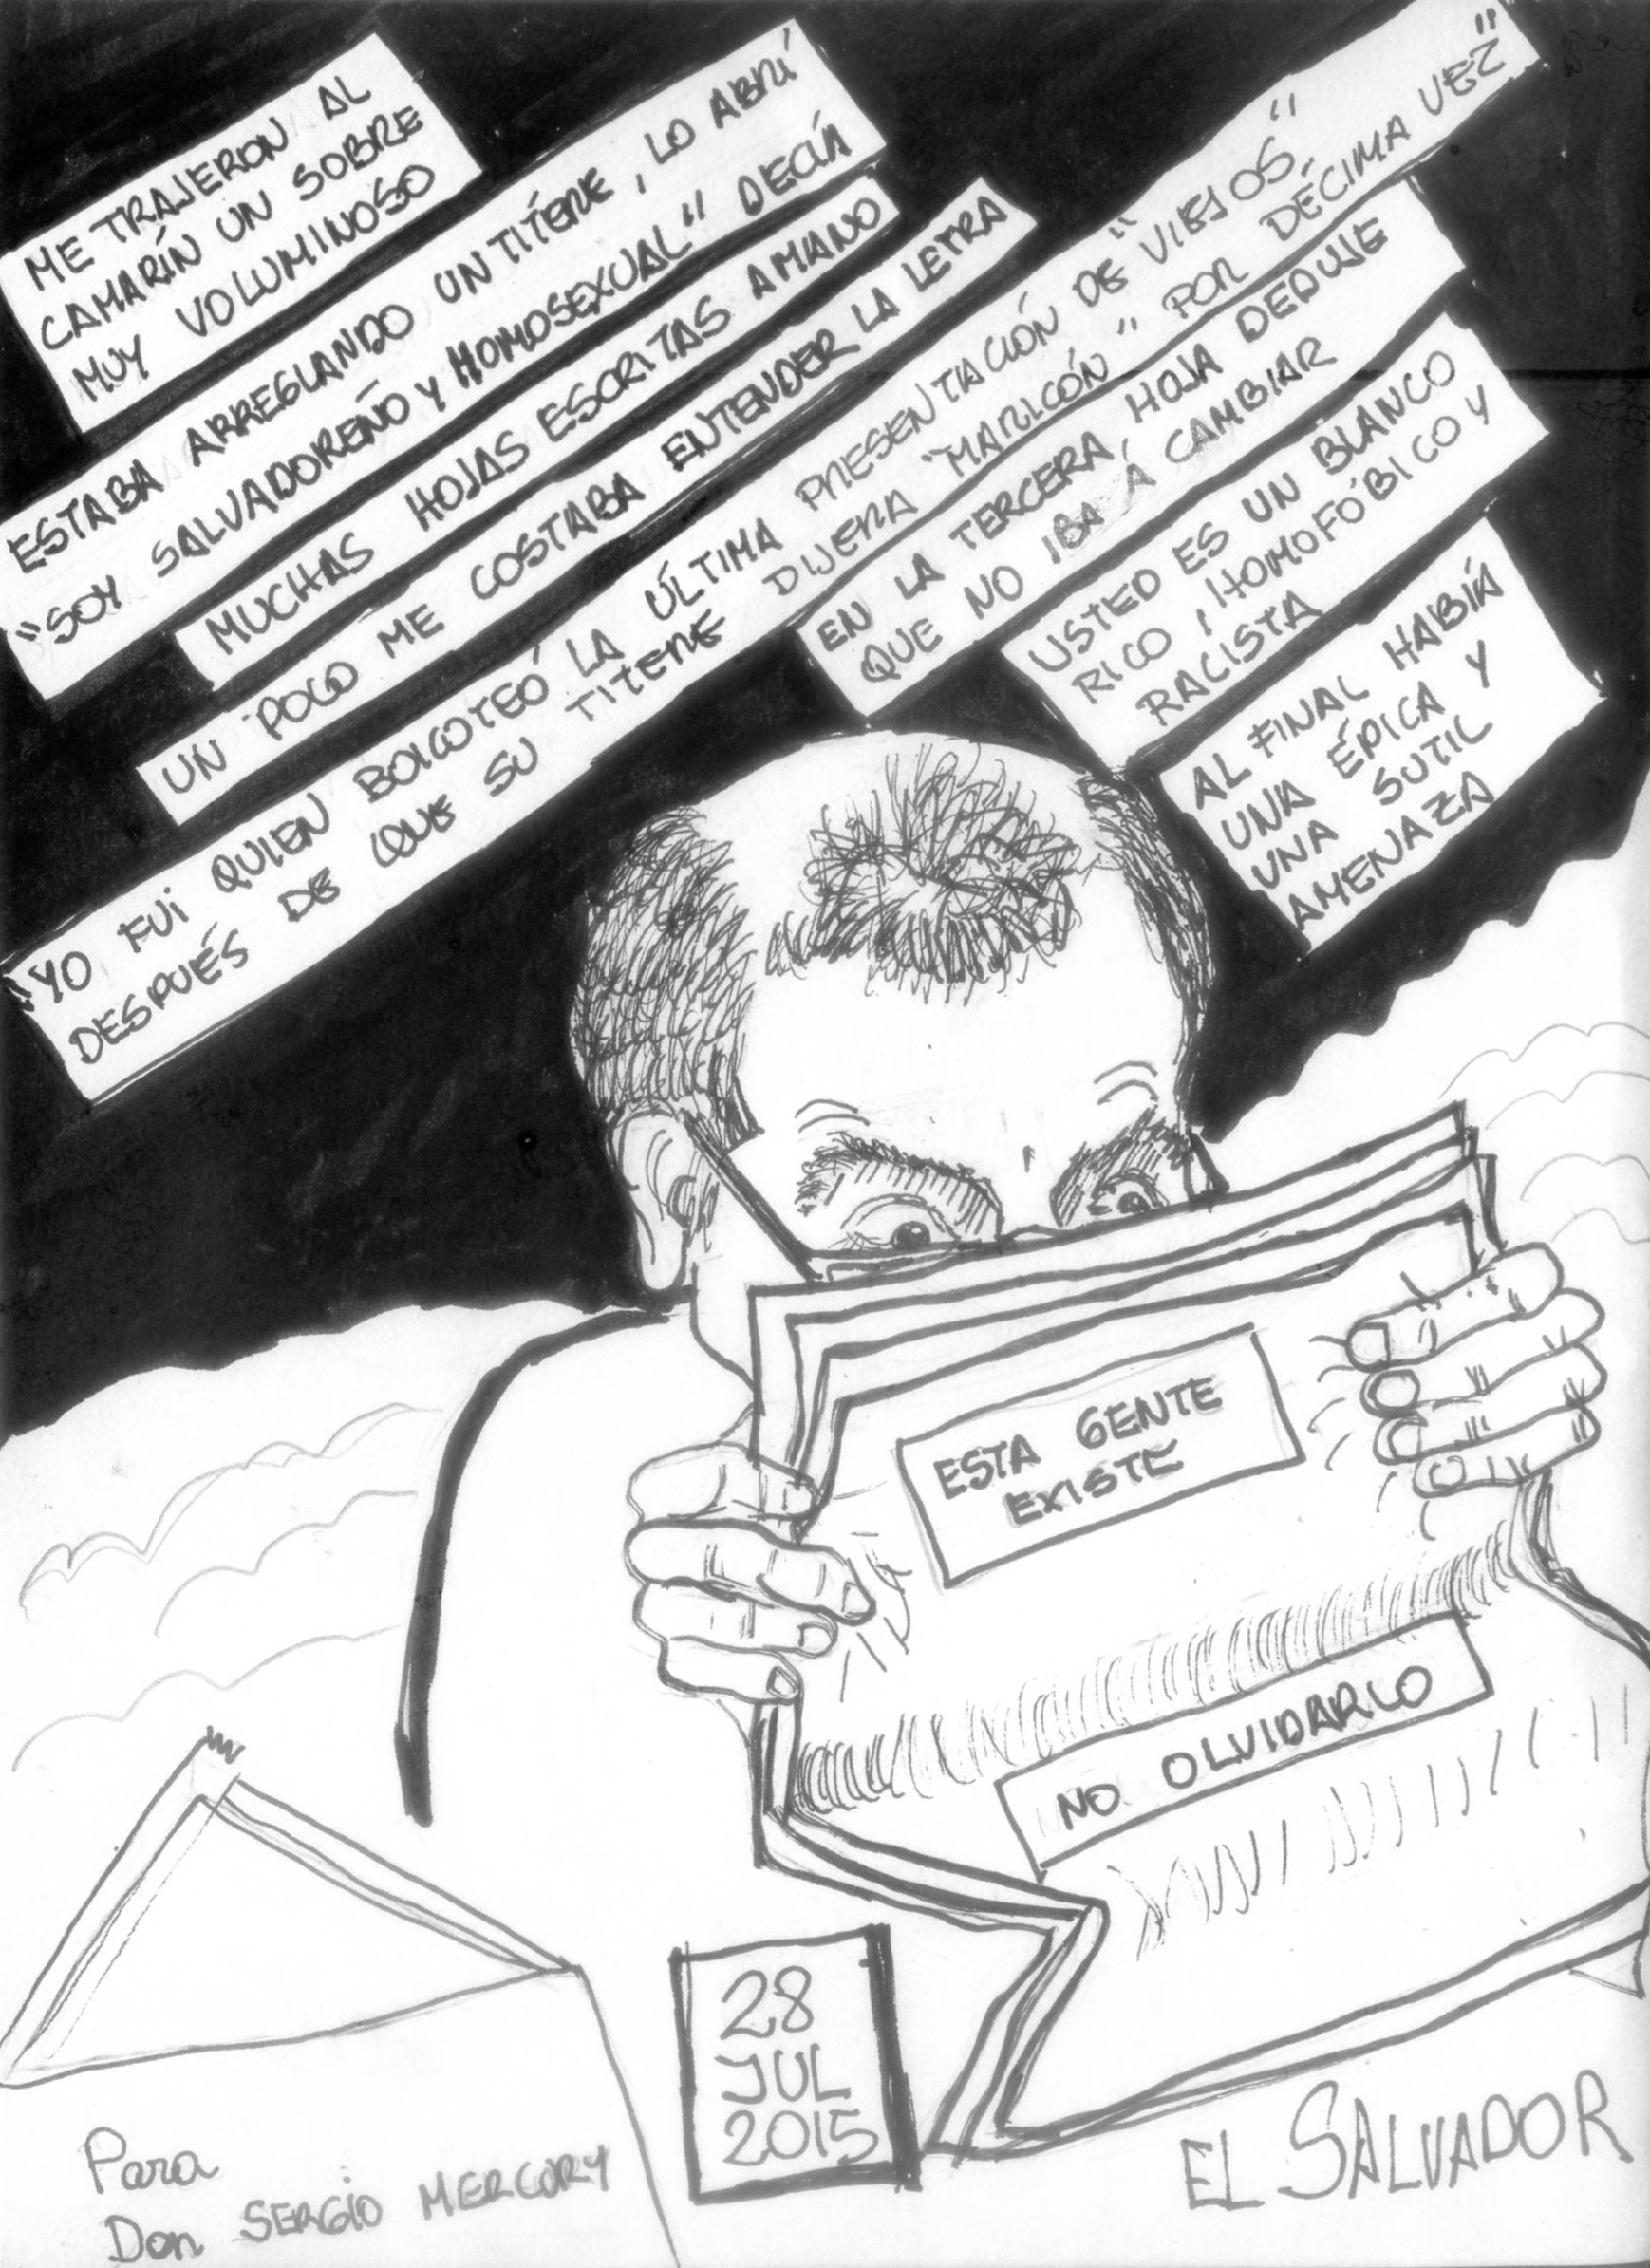 ME TRAJERON AL
CAMARÍN UN SOBRE
MUY VOLUMINOSO
ESTABA ARREGLANDO UN TÍTERE, LO ABRÍ
"SOY SALVADOREÑO Y HOMOSEXUAL" DECÍA
MUCHAS HOJAS ESCRITAS A MANO
UN POCO ME COSTABA ENTENDER LA LETRA
"YO FUI QUIEN BOICOTEÓ LA ÚLTIMA PRESENTACIÓN DE "VIEJOS"
DESPUÉS DE QUE SU TITERE DIJERA "MARICÓN" POR DÉCIMA VEZ"
EN LA TERCERA HOJA DEDUJE
QUE NO IBA A CAMBIAR
USTED ES UN BLANCO
RICO, HOMOFÓBICO Y
RACISTA
AL FINAL HABÍA
UNA ÉPICA Y
UNA SUTIL
AMENAZA
ESTA GENTE
EXISTE
NO OLVIDARLO
28
JUL
2015
Para
Don SERGIO MERCURY
EL SALVADOR